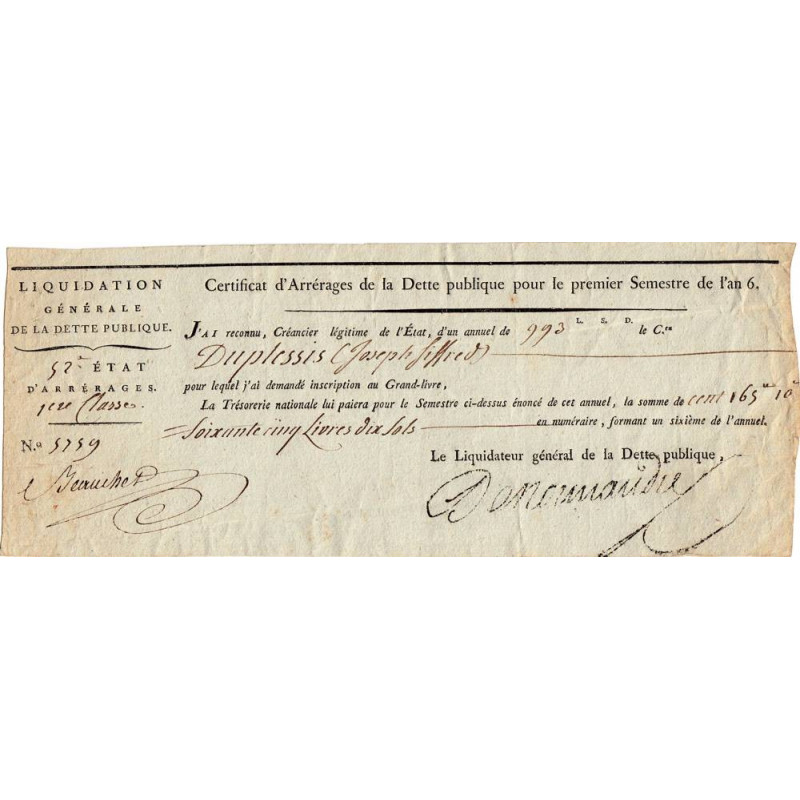 LIQUIDATION
GÉNÉRALE
DE LA DETTE PUBLIQUE.
52e ÉTAT
D'ARRÉRAGES.
1ere Classe
N.o 5759
Certificat d'Arrérages de la Dette publique pour le premier Semestre de l'an 6.
J'AI reconnu, Créancier légitime de l'État, d'un annuel de 993 L. S. D. le C.en
Duplessis (Joseph Siffred)
pour lequel j'ai demandé inscription au Grand-livre,
La Trésorerie nationale lui paiera pour le Semestre ci-dessus énoncé de cet annuel, la somme de cent 165 10
Soixante cinq Livres dix Sols en numéraire, formant un sixième de l'annuel.
Le Liquidateur général de la Dette publique,
Denormandie